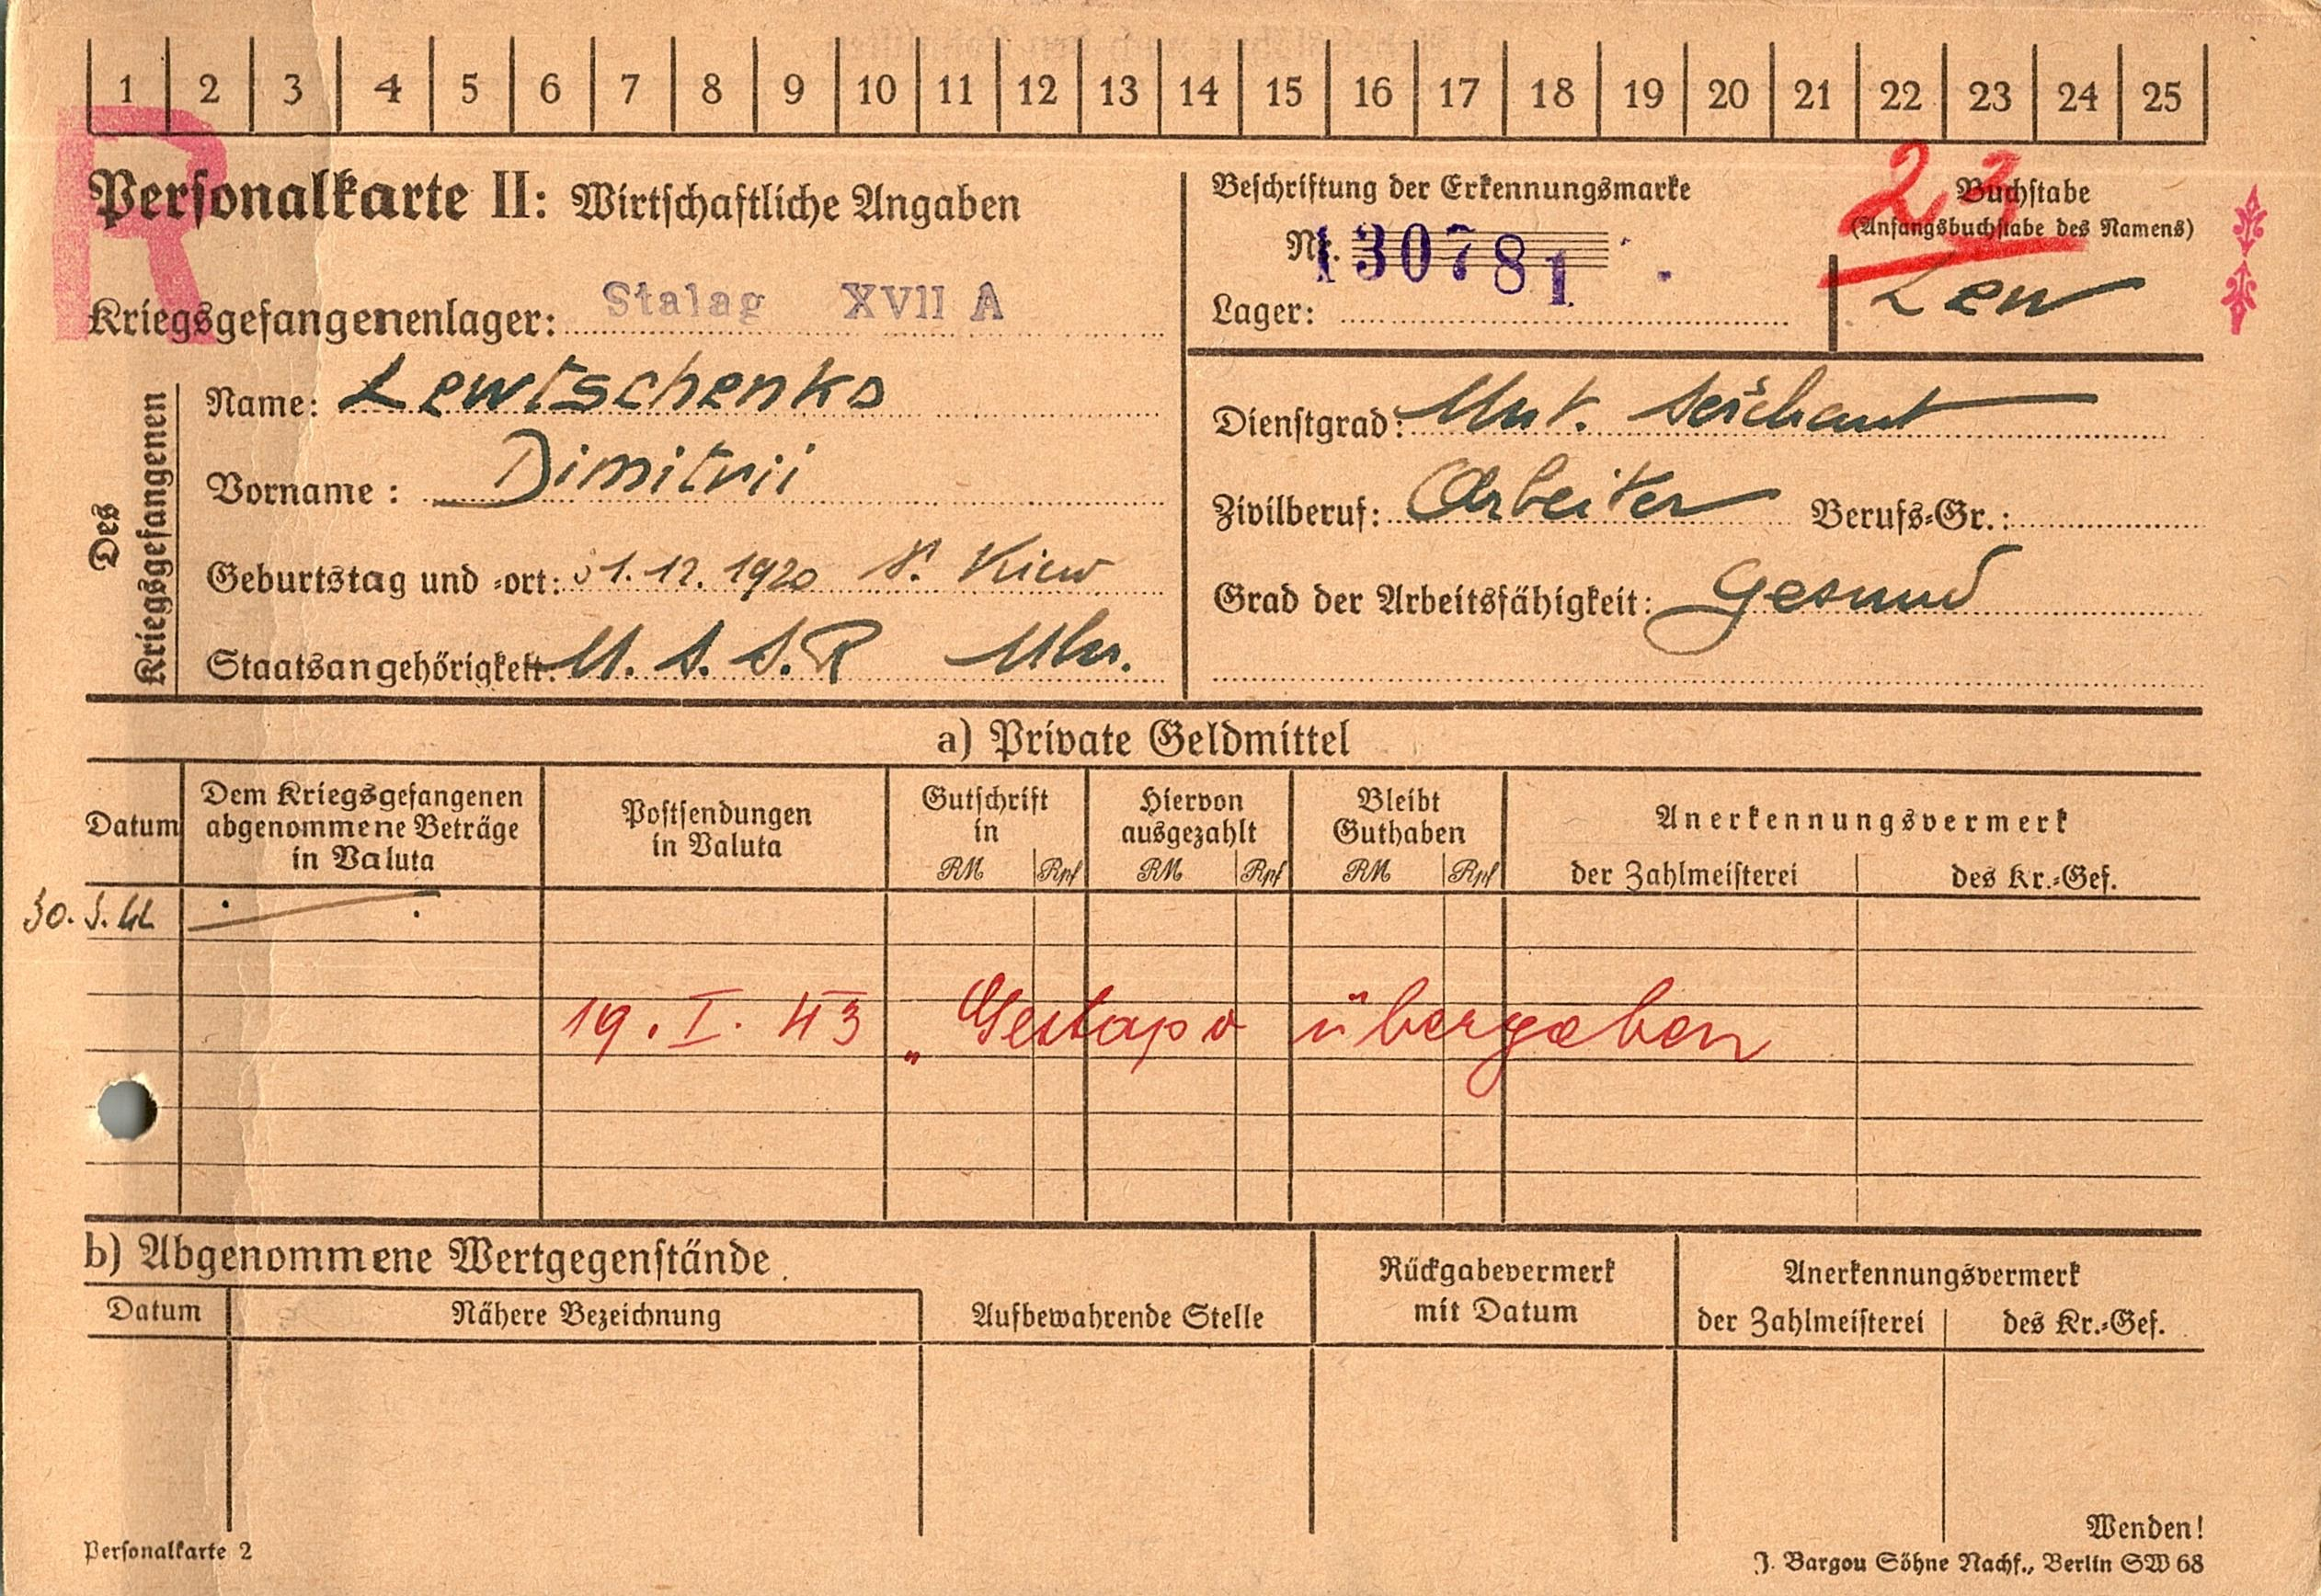 1 2 3 4 5 6 7 8 9 10 11 12 13 14 15 16 17 18 19 20 21 22 23 24 25
R
Personalkarte II: Wirtschaftliche Angaben
Kriegsgefangenenlager: Stalag XVII A
Beschriftung der Erkennungsmarke
Nr. 130781
Lager:
23
Buchstabe
(Anfangsbuchstabe des Namens)
Lew
Des Kriegsgefangenen
Name: Lewtschenko
Vorname: Dimitrii
Geburtstag und -ort: 1.12.1920 Kiew
Staatsangehörigkeit: U.S.S.R Ukr.
Dienstgrad: Unt. Seržhant
Zivilberuf: Arbeiter Berufs-Gr.:
Grad der Arbeitsfähigkeit: Gesund
a) Private Geldmittel
Datum
Dem Kriegsgefangenen abgenommene Beträge in Valuta
Postsendungen in Valuta
Gutschrift in RM Rpf
Hiervon ausgezahlt RM Rpf
Bleibt Guthaben RM Rpf
Anerkennungsvermerk
der Zahlmeisterei des Kr.-Gef.
30.
19. I. 43 „Gestapo" übergeben
b) Abgenommene Wertgegenstände
Datum
Nähere Bezeichnung
Aufbewahrende Stelle
Rückgabevermerk mit Datum
Anerkennungsvermerk
der Zahlmeisterei des Kr.-Gef.
Wenden!
Personalkarte 2
J. Bargou Söhne Nachf., Berlin SW 68